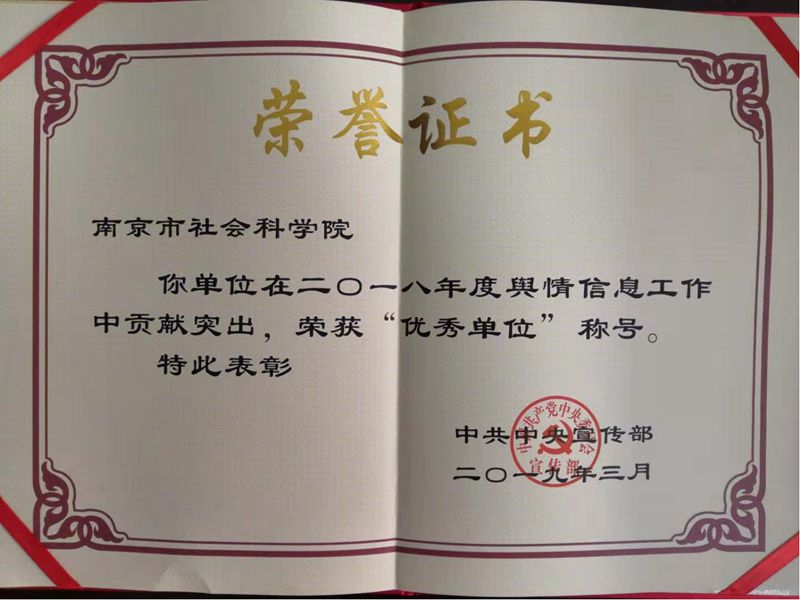 荣誉证书
南京市社会科学院
你单位在二〇一八年度舆情信息工作
中贡献突出，荣获“优秀单位”称号。
特此表彰
中共中央宣传部
二〇一九年三月
中国共产党中央委员会
宣传部